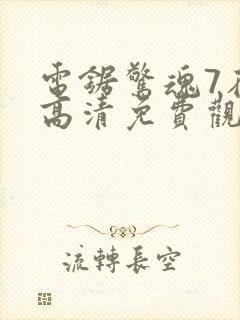 電鋸驚魂7在
高清免費觀
流轉長空